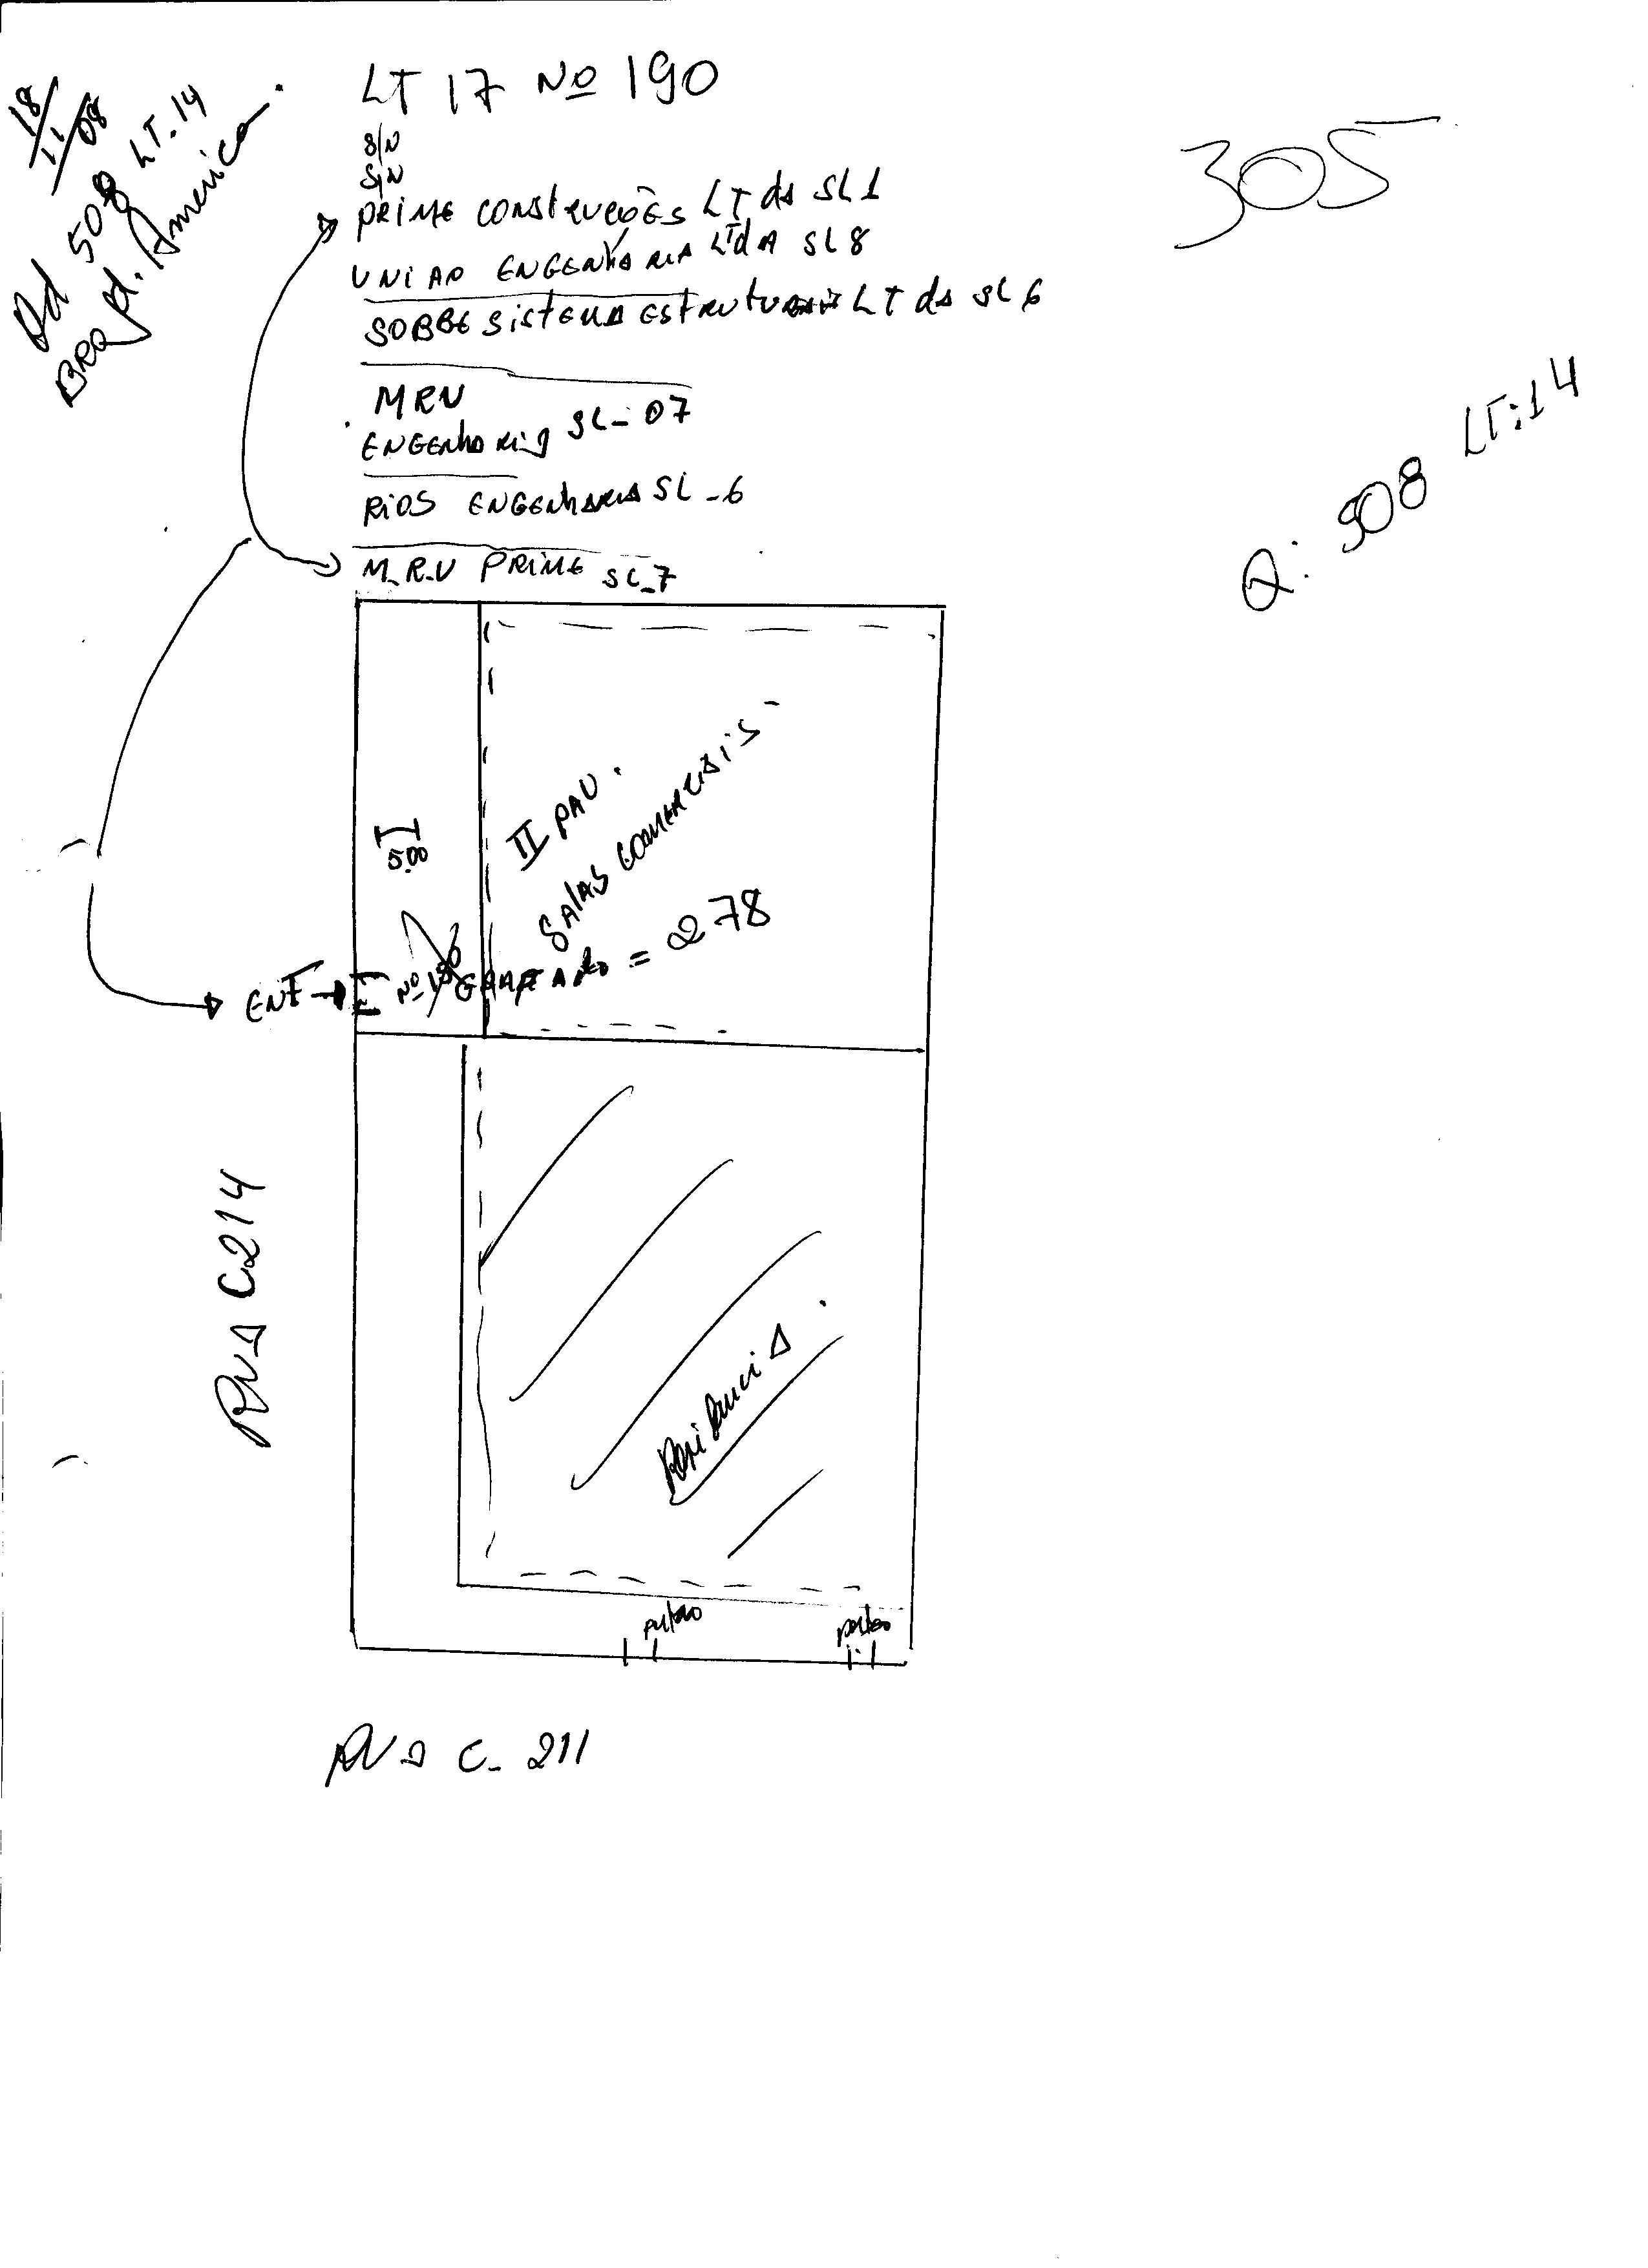 18/11/08
Qd 508 LT.14
Jd. América.
LT 17 Nº 190
S/N
S/N
PRIME CONSTRUÇÕES LTda SL 1
UNIAO ENGENHARIA LTdA SL 8
SOBRE SISTEMA ESTRUTURAIS LTda SL 6
MRV
ENGENHARIA SL-07
RIOS ENGENHARIA SL-6
M.R.V PRIME SL-7
305
Q: 508 LT:14
5.00
II PAV.
SALAS COMERCIAIS
ENT Nº 190 = 278
RUA C214
Residencia.
portao portao
RUA C-211